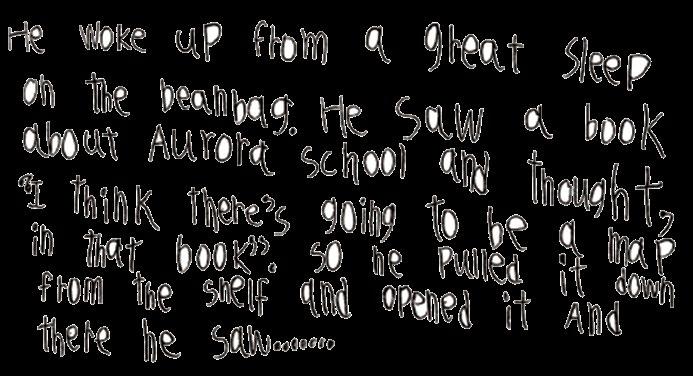 He woke up from a great sleep
on the beanbag. He saw a book
about Aurora school and thought,
"I think there's going to be a map
in that book". so he pulled it down
from the shelf and opened it And
there he saw.......